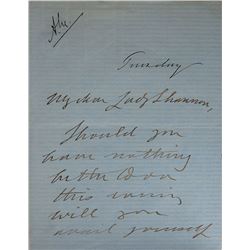 Tuesday
My dear Lady Shannon,
Should you
have nothing
better to do
this evening
will you
avail yourself